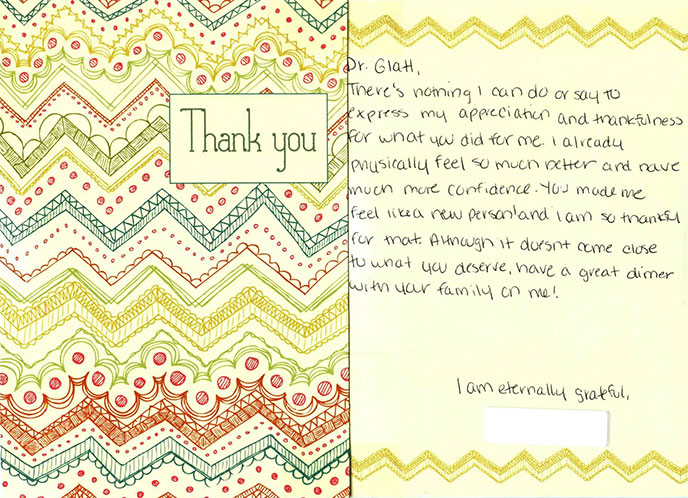 Thank you
Dr. Glatt,
There's nothing I can do or say to
express my appreciation and thankfulness
for what you did for me. I already
physically feel so much better and have
much more confidence. You made me
feel like a new person! and I am so thankful
for that. Although it doesn't come close
to what you deserve, have a great dinner
with your family on me!
I am eternally grateful,